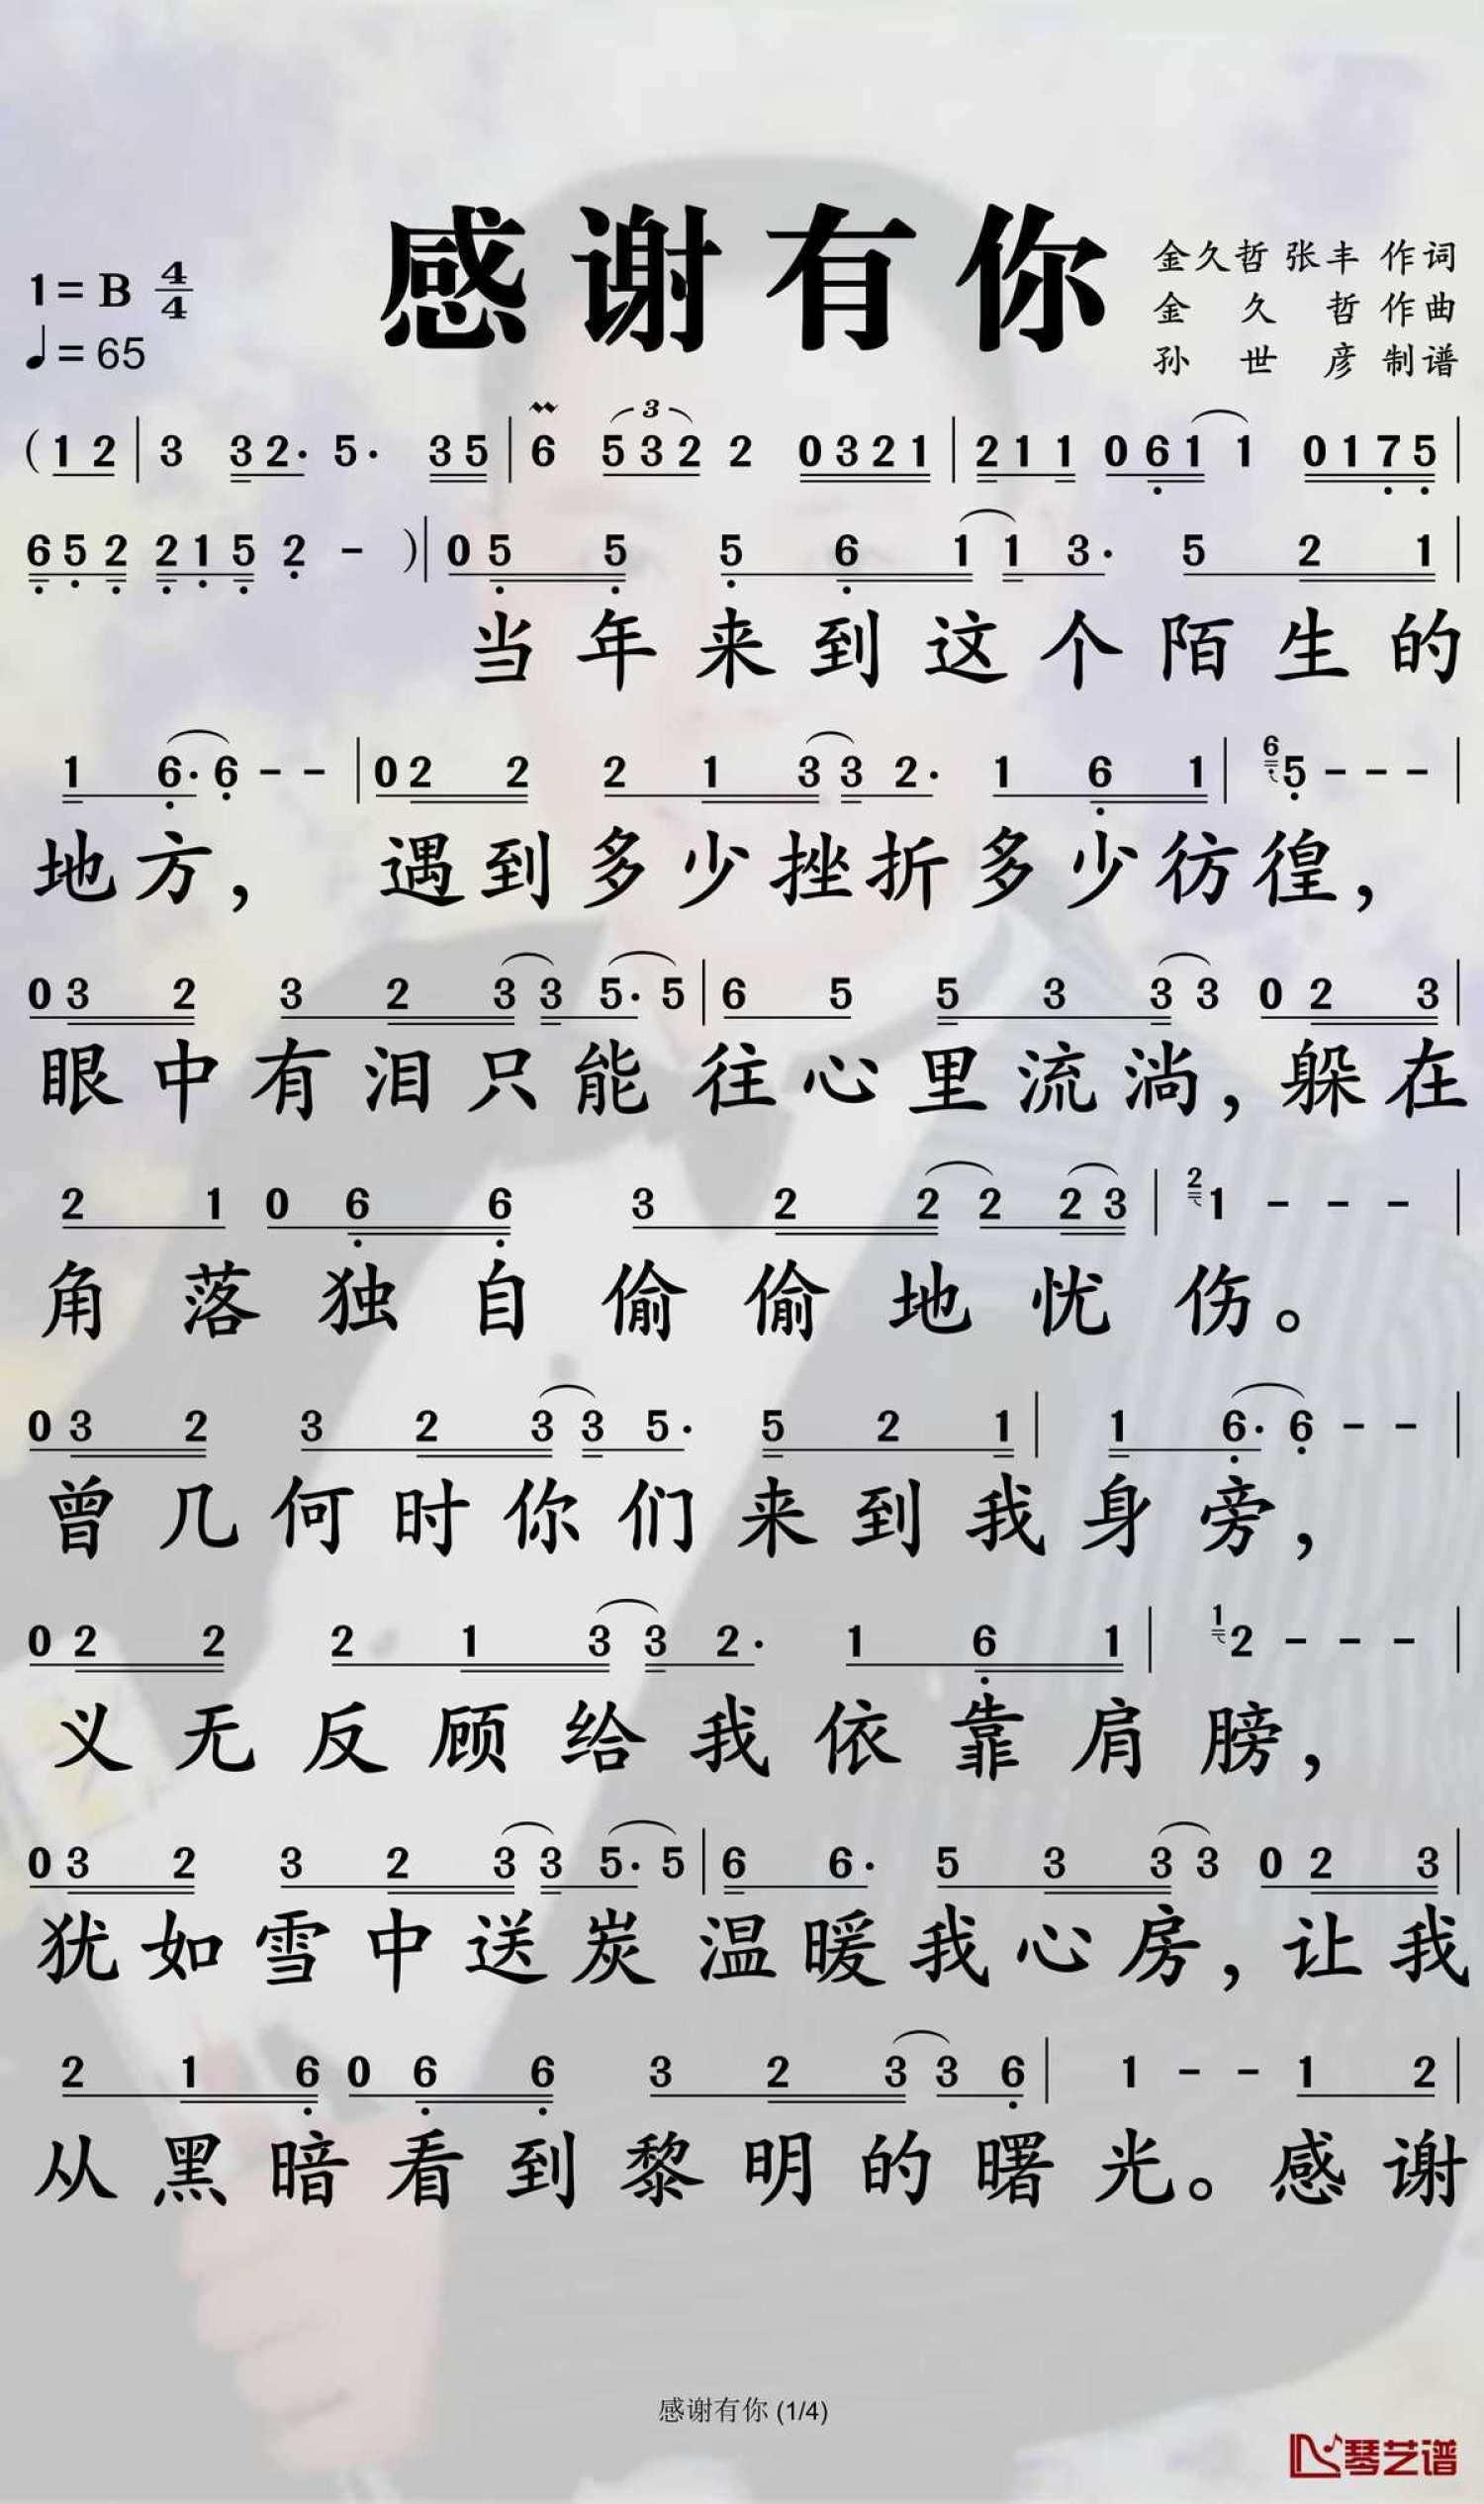 感谢有你
1=B 4/4
♩=65
金久哲 张丰 作词
金久哲 作曲
孙世彦 制谱
( 1 2 | 3 3 2· 5· 3 5 | 6 5 3 2 2 0 3 2 1 | 2 1 1 0 6 1 1 0 1 7 5 |
3
6 5 2 2 1 5 2 - ) | 0 5 5 5 6 1 1 3· 5 2 1 |
当年来到这个陌生的
1 6· 6 - - | 0 2 2 2 1 3 3 2· 1 6 1 | 6 5 - - - |
地方， 遇到多少挫折多少彷徨，
0 3 2 3 2 3 3 5· 5 | 6 5 5 3 3 3 0 2 3 |
眼中有泪只能往心里流淌，躲在
2 1 0 6 6 3 2 2 2 2 3 | 2 1 - - - |
角落独自偷偷地忧伤。
0 3 2 3 2 3 3 5· 5 2 1 | 1 6· 6 - - |
曾几何时你们来到我身旁，
0 2 2 2 1 3 3 2· 1 6 1 | 1 2 - - - |
义无反顾给我依靠肩膀，
0 3 2 3 2 3 3 5· 5 | 6 6· 5 3 3 3 0 2 3 |
犹如雪中送炭温暖我心房，让我
2 1 6 0 6 6 3 2 3 3 6 | 1 - - 1 2 |
从黑暗看到黎明的曙光。感谢
感谢有你 (1/4)
琴艺谱